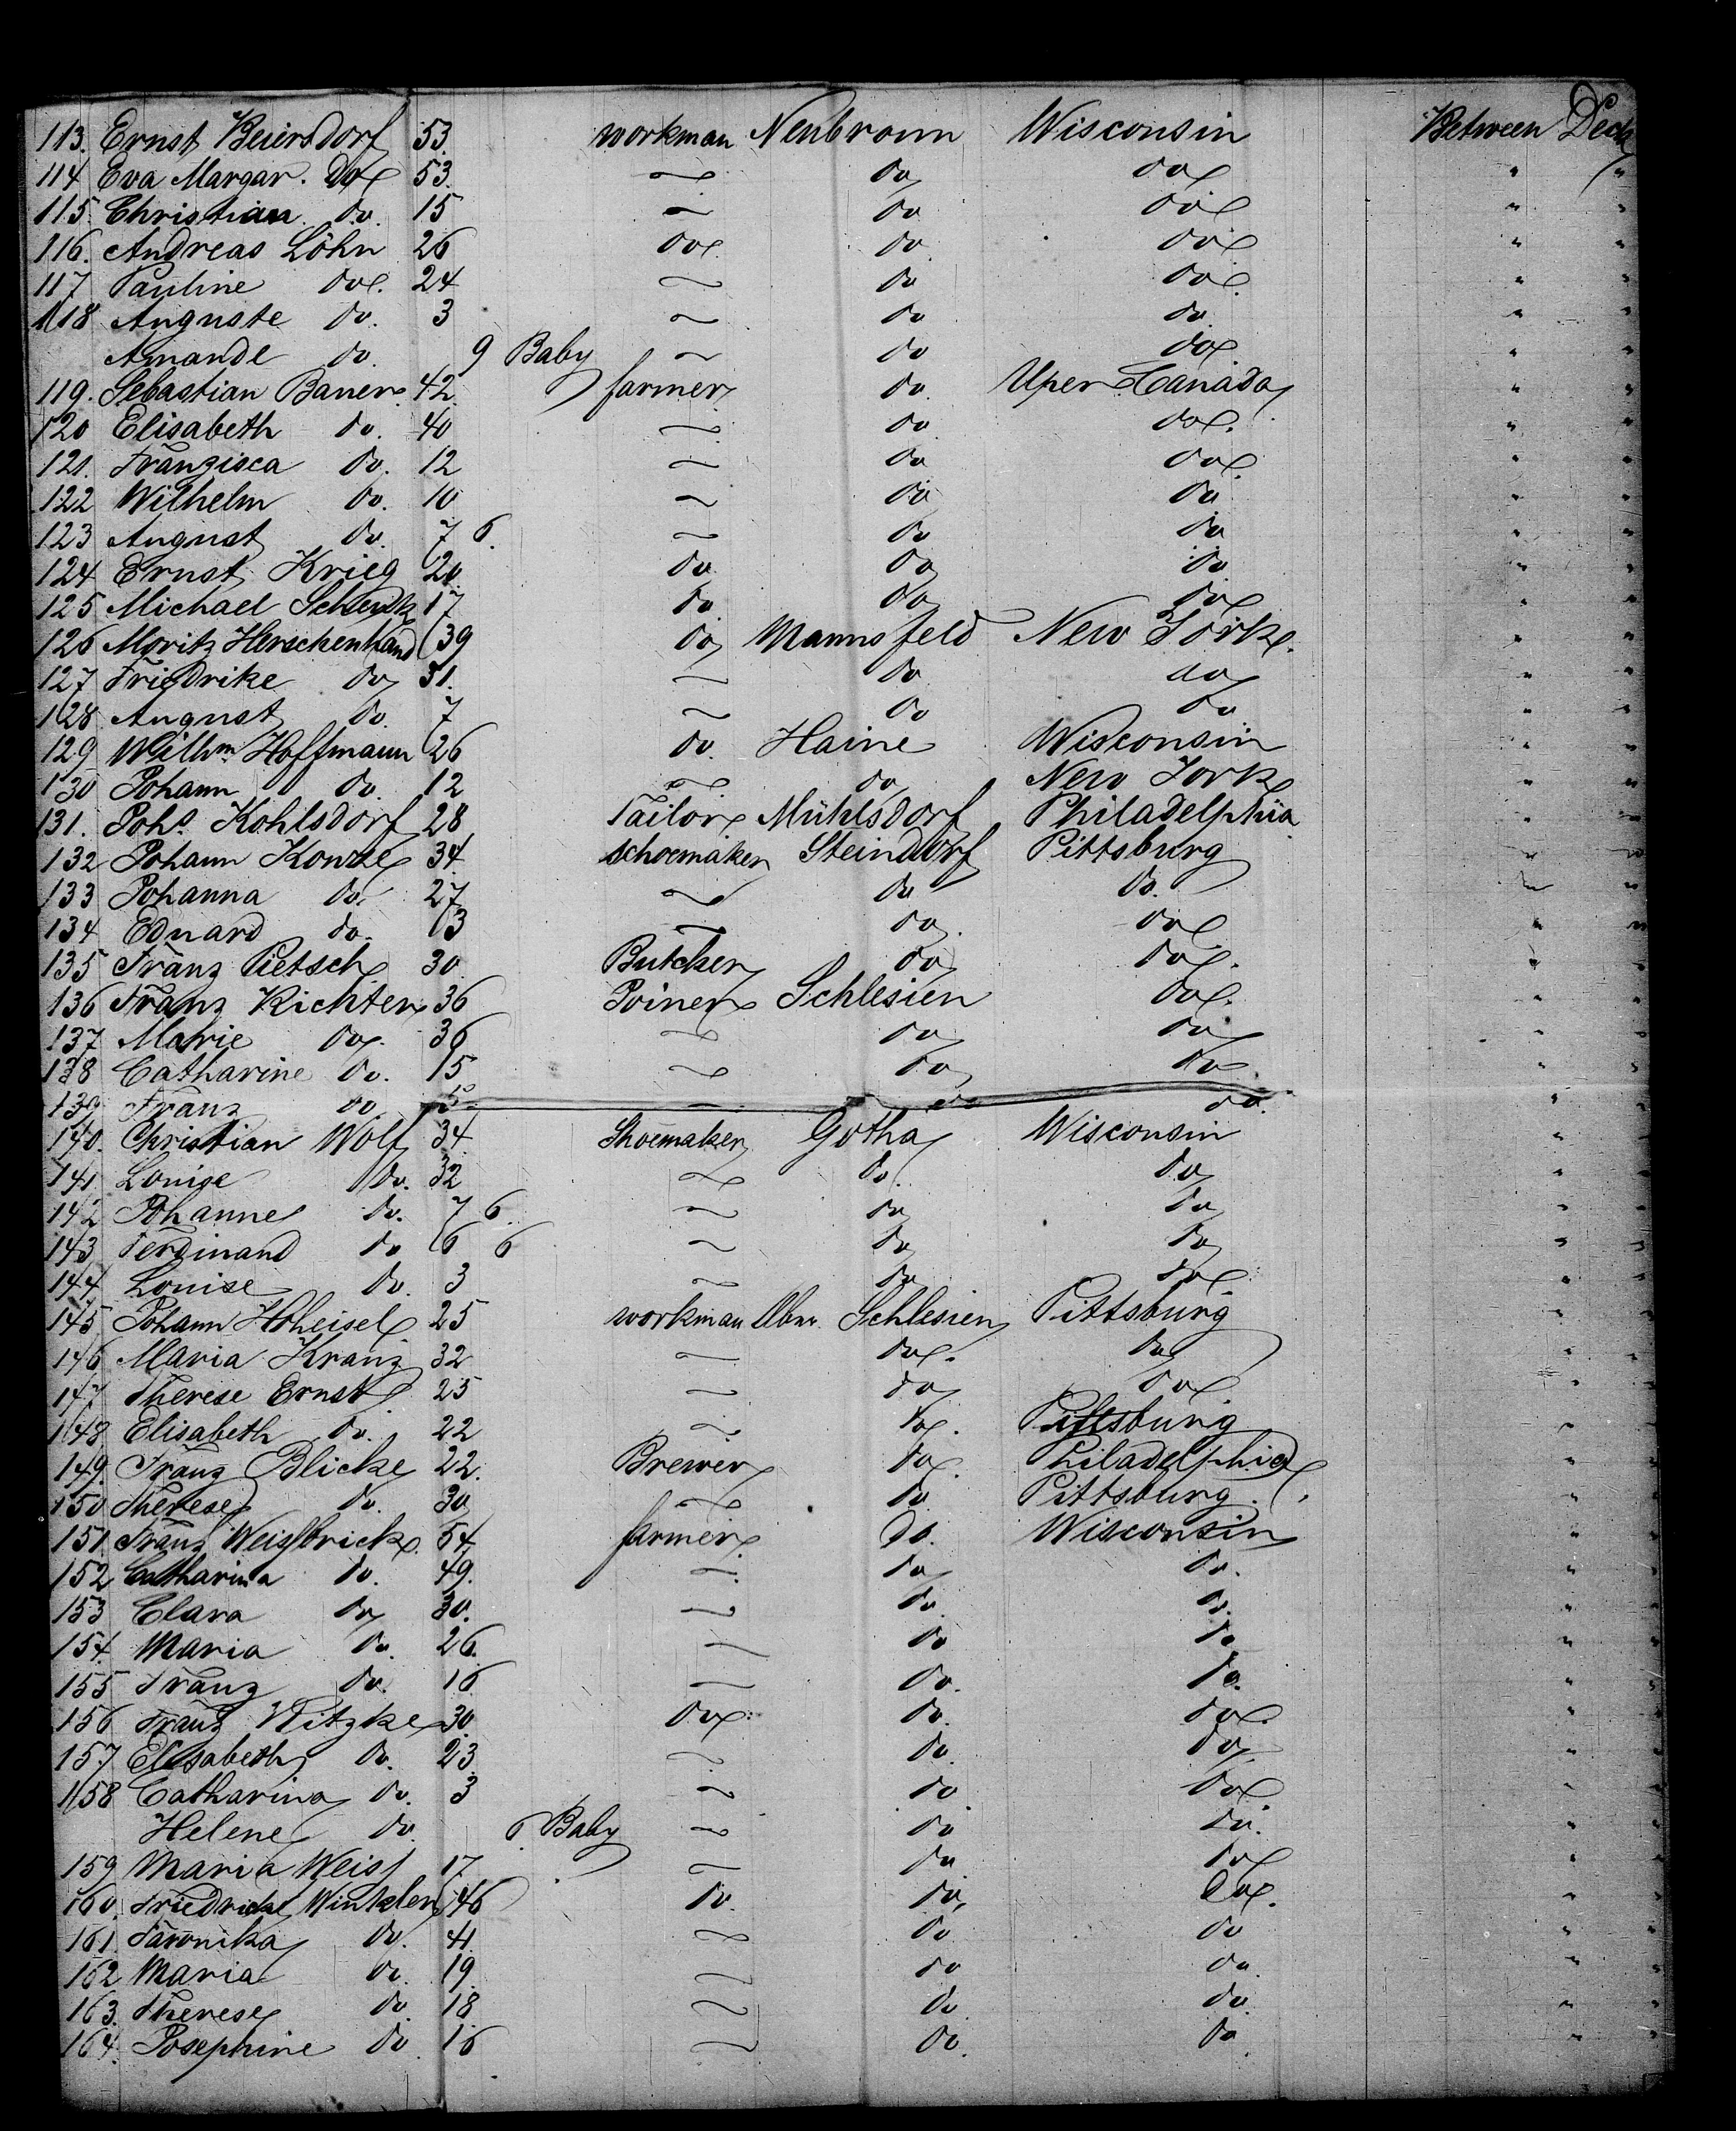 113. Ernst Beiersdorf 53. workman Neubronn Wisconsin Between Deck
114 Eva Margar. Do 53. — do do " "
115. Christian do. 15 — do do " "
116. Andreas Löhn 26 do do do " "
117 Pauline do. 24 — do do. " "
118 Auguste do. 3 — do do. " "
Amande do 9 Baby — do do. " "
119. Sebastian Bauer 42. farmer do. Uper Canada " "
120 Elisabeth do. 40 — do. do. " "
121. Franzisca do. 12 — do do. " "
122 Wilhelm do. 10 — do do " "
123 August do. 7 6. — do do " "
124 Ernst Krieg 20. do. do do " "
125 Michael Schenk 17 do do do " "
126 Moritz Herschenhand 39 do Mannsfeld New York. " "
127 Friedrike do 31. — do do " "
128 August do. 7 — do do " "
129 Wilhm Hoffmann 26 do. Haine Wisconsin " "
130 Johann do. 12 — do New York " "
131. Johs. Kohlsdorf 28 Tailor Mühlsdorf Philadelphia " "
132 Johann 34. schoemaker Steindorf Pittsburg " "
133 Johanna do. 27 — do do. " "
134 Eduard do. 3 — do. do " "
135 Franz Pietsch 30. Butcher do do. " "
136 Franz Richter 36 Joiner Schlesien do. " "
137 Marie do. 36 — do do " "
138 Catharine do. 15 — do do. " "
139 Franz do. — do do. " "
140. Christian Wolf 34. Shoemaker Gotha Wisconsin " "
141 Louise do. 32 — do. do " "
142 Johanne do. 7 6. — do do " "
143 Ferdinand do 6 6 — do do " "
144 Louise do. 3 — do do " "
145 Johann Hoheisel 25 workman Ober Schlesien Pittsburg " "
146 Maria Kranz 32 — do. do " "
147 Therese Ernst 25 — do do " "
148 Elisabeth do. 22 — do. Pittsburg " "
149. Franz Blicke 22. Brewer do. Philadelphia " "
150 Therese do. 30 — do Pittsburg. " "
151. Franz Weissbrick 54 farmer do. Wisconsin " "
152 Catharina do. 49. — do do. " "
153 Clara do 30. — do. do. " "
154. Maria do. 26. — do do " "
155 Franz do. 16 — do. do. " "
156 Franz Witzke 30. do. do. do. " "
157 Elisabeth do. 23. — do. do. " "
158 Catharina do. 3 — do do " "
Helene do. 6 Baby — do do. " "
159 Maria Weiss 17 — do do " "
160. Friedrick Winkler 46 do. do. do. " "
161. Faronika do. 41. — do do " "
162 Maria do. 19. — do do. " "
163. Therese do. 18. — do do. " "
164. Josephine do. 16 — do. do. " "